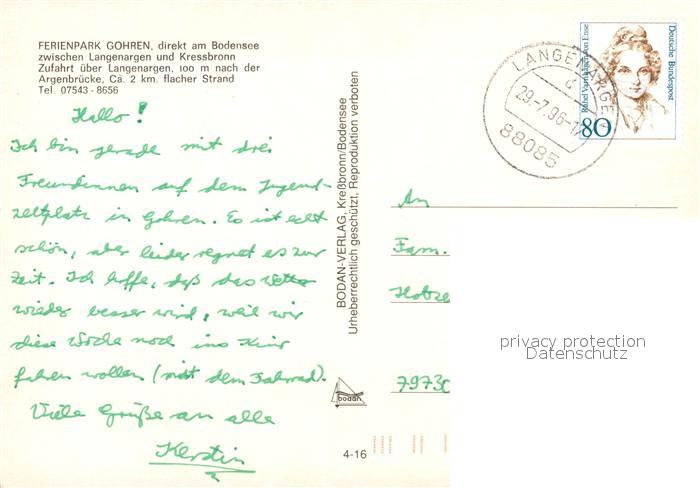 FERIENPARK GOHREN, direkt am Bodensee
zwischen Langenargen und Kressbronn
Zufahrt über Langenargen, 100 m nach der
Argenbrücke, Ca. 2 km. flacher Strand
Tel. 07543 - 8656
Hallo!
Ich bin gerade mit drei
Freundinnen auf dem Jugend-
zeltplatz in Gohren. Es ist echt
schön, aber leider regnet es zur
Zeit. Ich hoffe, daß das Wetter
wieder besser wird, weil wir
diese Woche noch ins Kino
fahren wollen (mit dem Fahrrad).
Viele Grüße an alle
Kerstin
BODAN-VERLAG, Kreßbronn/Bodensee
Urheberrechtlich geschützt, Reproduktion verboten
bodan
4-16
LANGENARGEN
29.-7.96-17
88085
Rahel Varnhagen von Ense
Deutsche Bundespost
80
An
Fam.
7973
privacy protection
Datenschutz